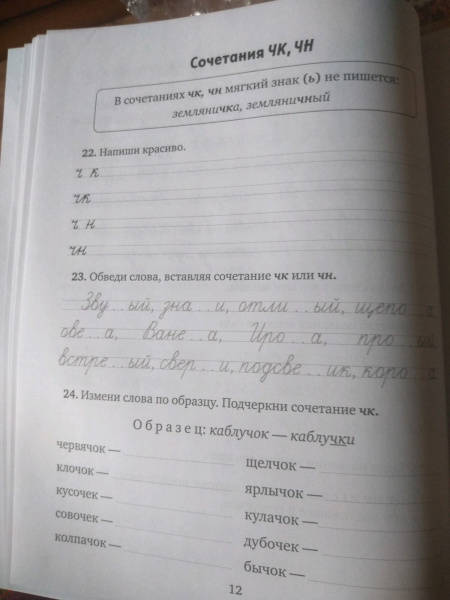 Сочетания ЧК, ЧН
В сочетаниях чк, чн мягкий знак (ь) не пишется:
земляничка, земляничный
22. Напиши красиво.
ч к
чк
ч н
чн
23. Обведи слова, вставляя сочетание чк или чн.
Зву . . ый, зна . . и, отли . . ый, щепо . . а
ове . . а, Ване . . а, Иро . . а, про . . ый
встре . . ый, свер . . и, подсве . . ик, коро . . а
24. Измени слова по образцу. Подчеркни сочетание чк.
Образец: каблучок — каблучки
червячок —
щелчок —
клочок —
ярлычок —
кусочек —
кулачок —
совочек —
дубочек —
колпачок —
бычок —
12